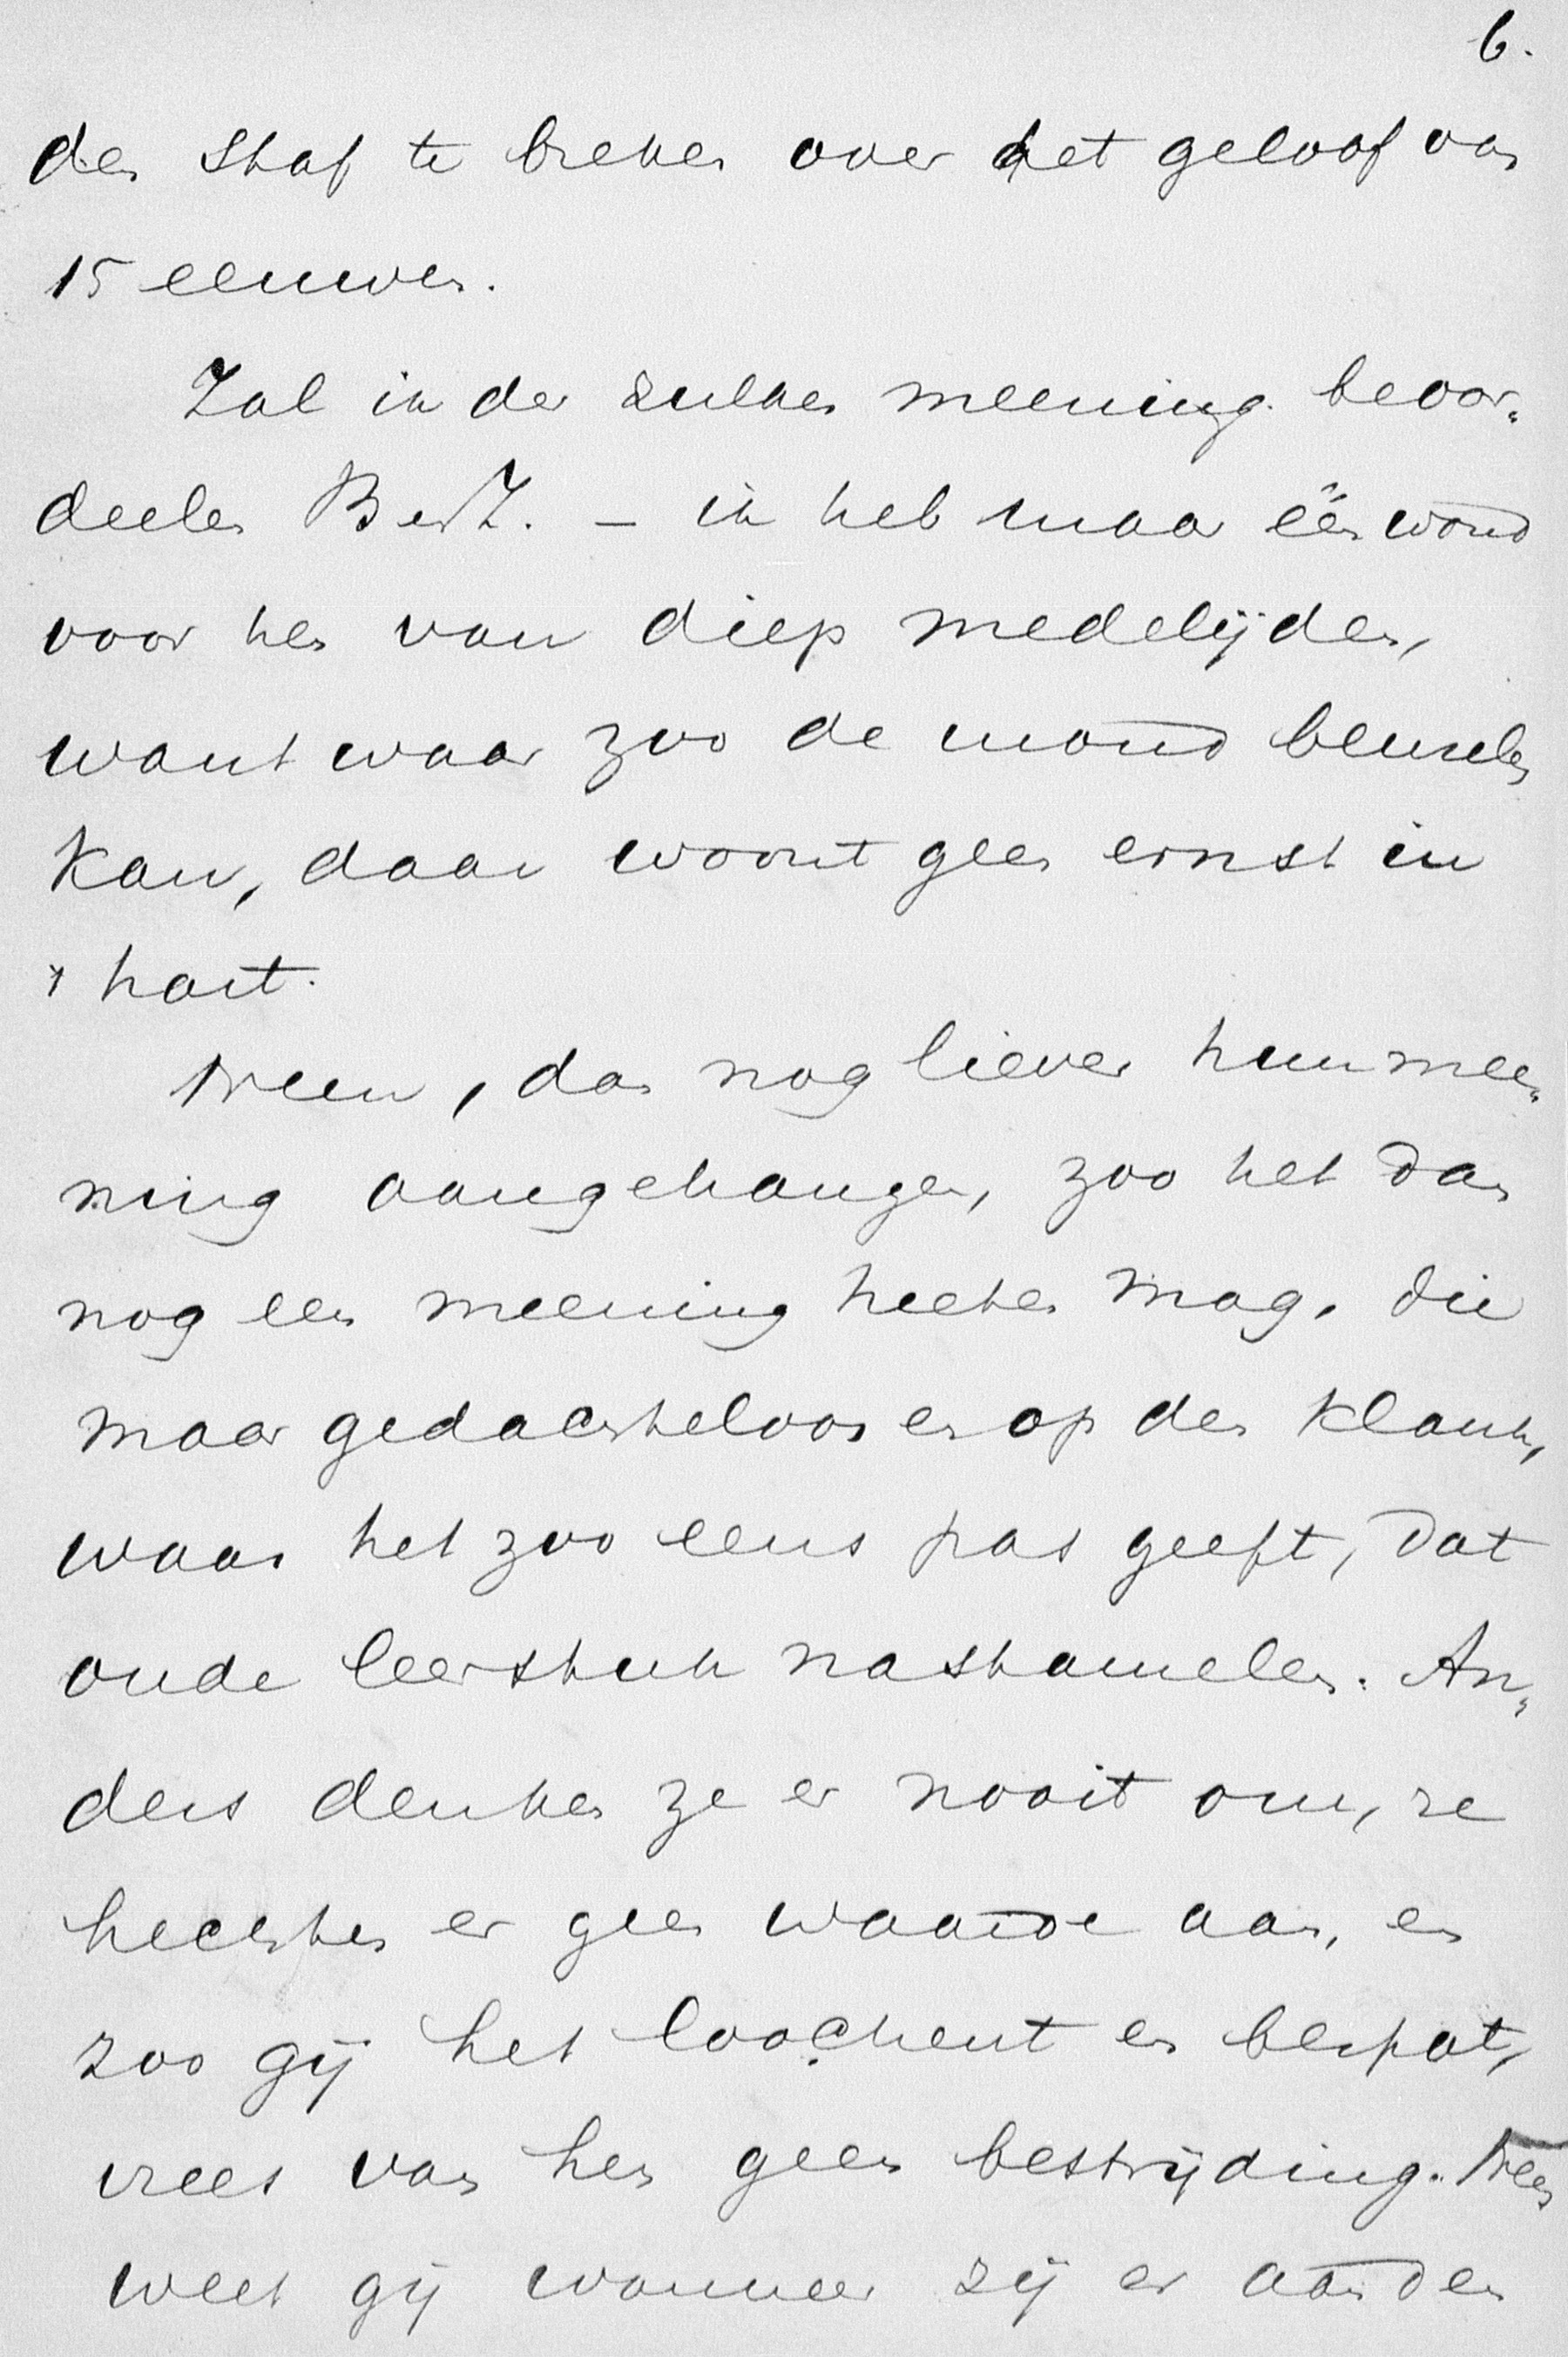 6.
den staf te breken over het geloof van
15 eeuwen.
Zal ik der zulken meening beoor„
deelen B en Z. – ik heb maar één woord
voor hen van diep medelijden,
want waar zoo de mond beuzelen
kan, daar woont geen ernst in
't hart.
Neen, dan nog liever hun mee„
ning aangehangen, zoo het dan
nog een meening heeten mag, die
maar gedachteloos en op den klank,
waar het zoo eens pas geeft, dat
oude leerstuk nastamelen. An„
ders denken ze er nooit om, ze
hechten er geen waarde aan, en
zoo gij het loochent en bespot,
vrees van hen geen bestrijding. Neen
weet gij wanneer zij er aan den